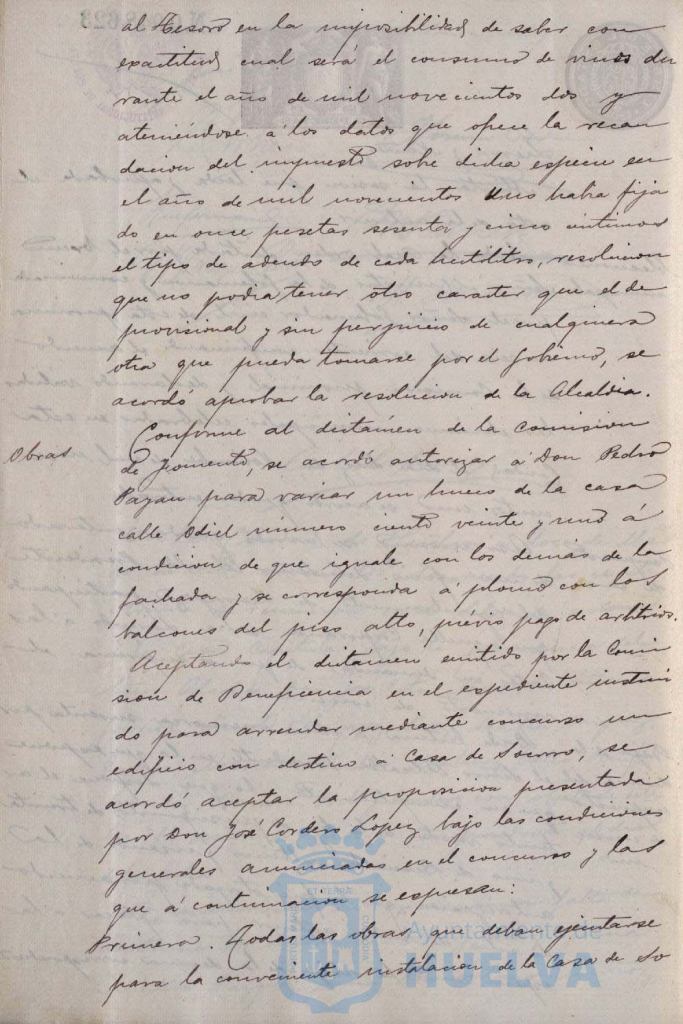 al Tesoro en la imposibilidad de saber con
exactitud cual será el consumo de vinos du
rante el año de mil novecientos dos y
ateniéndose á los datos que ofrece la recau
dacion del impuesto sobre dicha especie en
el año de mil novecientos uno habia fija
do en once pesetas sesenta y cinco centimos
el tipo de adeudo de cada hectolitro, resolucion
que no podia tener otro caracter que el de
provisional y sin perjuicio de cualquiera
otra que pueda tomarse por el Gobierno, se
acordó aprobar la resolucion de la Alcaldia.
Obras
Conforme al dictámen de la Comision
de Fomento, se acordó autorizar á Don Pedro
Payan para variar un hueco de la casa
calle Odiel número ciento veinte y uno á
condicion de que iguale con los demás de la
fachada y se corresponda á plomo con los
balcones del piso alto, prévio pago de arbitrios.
Aceptando el dictamen emitido por la Comi
sion de Beneficencia en el expediente instrui
do para arrendar mediante concurso un
edificio con destino á Casa de Socorro, se
acordó aceptar la proposicion presentada
por Don José Cordero Lopez bajo las condiciones
generales anunciadas en el concurso y las
que á continuacion se espresan:
Primera. Todas las obras que deban ejecutarse
para la conveniente instalacion de la Casa de So
Ayuntamiento de
HUELVA